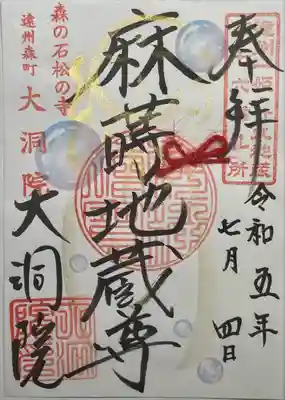 奉拝
令和五年
七月四日
麻蒔地蔵尊
森の石松の寺
遠州森町 大洞院
大洞院